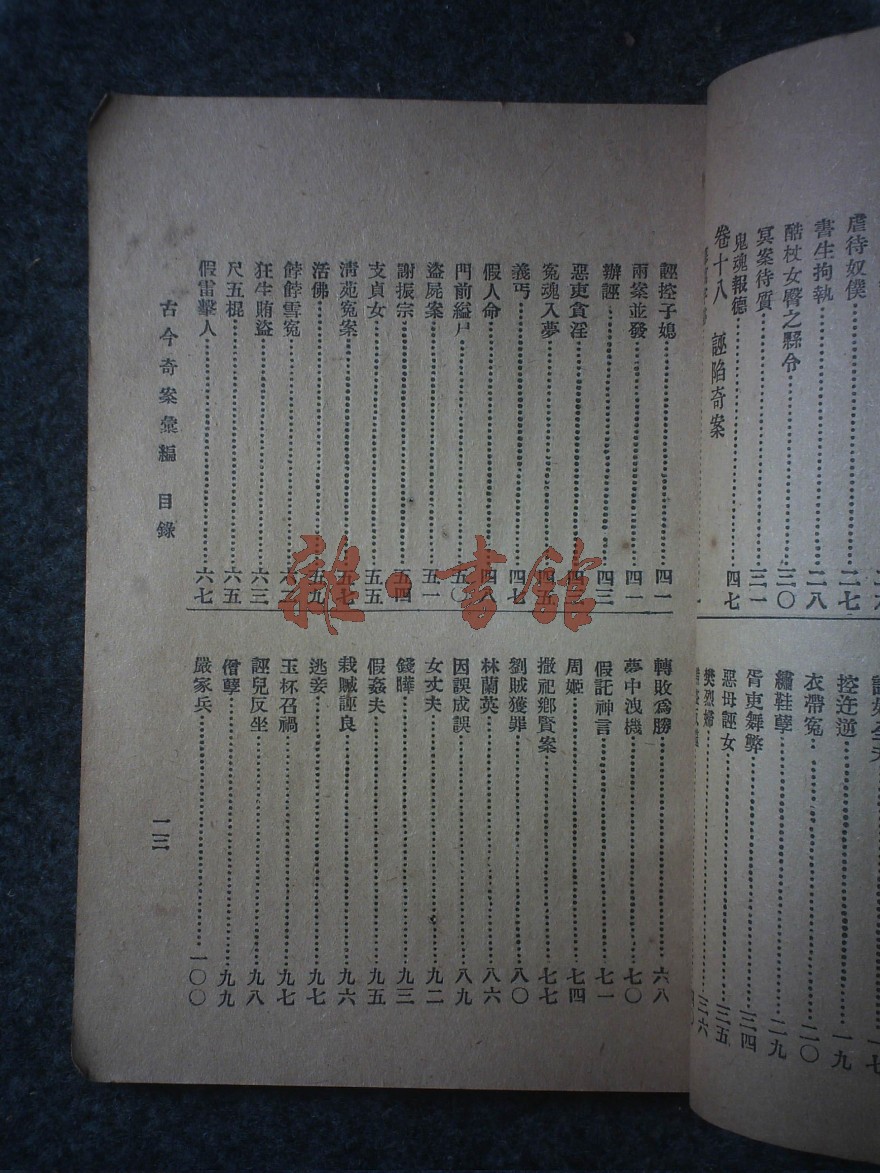 虐待奴僕……二七
書生拘執……二八
酷杖女臀之縣令……三〇
冥案待質……三一
鬼魂報德……四七
卷十八 誣陷奇案
控迕逆……一九
衣帶冤……二〇
繡鞋孽……二九
胥吏舞弊……三四
惡母誣女……三五
樊烈婦……三六
誣控子媳……四一
兩案並發……四一
辦誣……四三
惡吏貪淫……四三
冤魂入夢……四五
義丐……四七
假人命……四八
門前縊尸……五〇
盜屍案……五一
謝振宗……五四
支貞女……五五
清苑冤案……五七
活佛……五九
餑餑雪冤……六二
狂生賄盜……六三
尺五棍……六五
假雷擊人……六七
轉敗為勝……六八
夢中洩機……七〇
假託神言……七一
周姬……七四
撤祀鄉賢案……七七
劉賊獲罪……八〇
林蘭英……八六
因誤成誤……八九
女丈夫……九二
錢曄……九三
假姦夫……九五
栽贓誣良……九六
逃妾……九七
玉杯召禍……九七
誣兒反坐……九八
僧孽……九九
嚴家兵……一〇〇
古今奇案彙編 目錄
一三
雜·書館